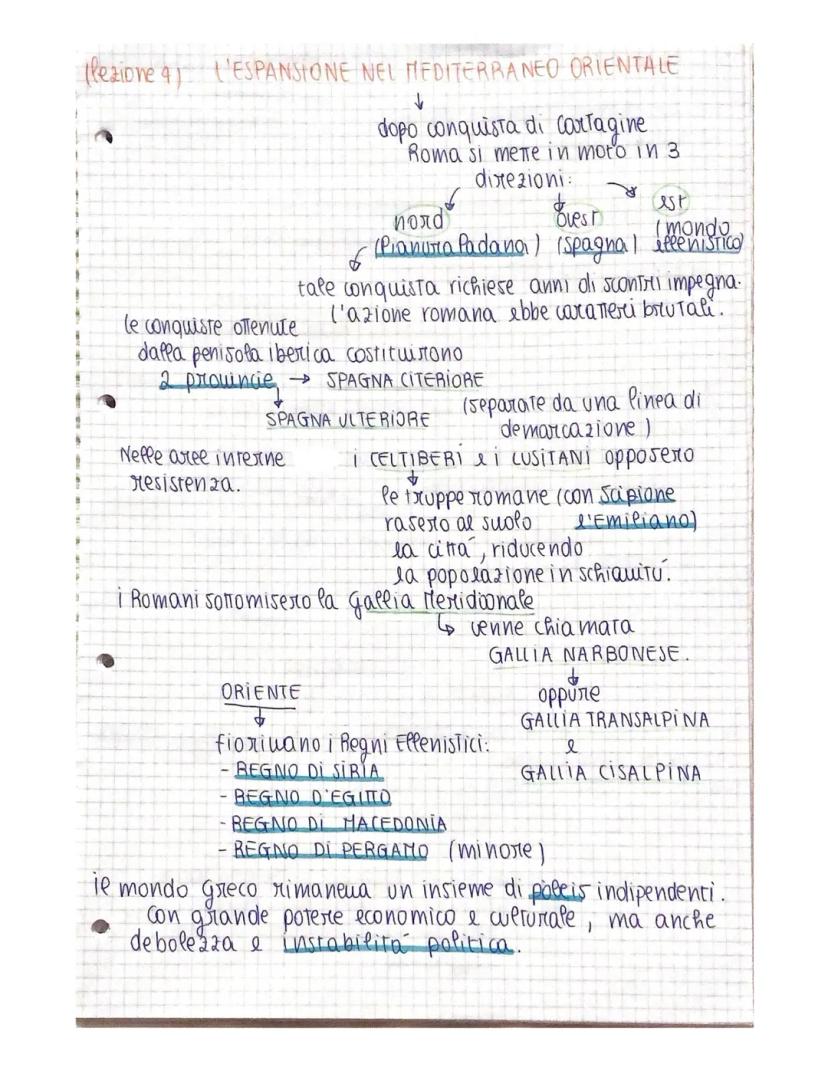 (lezione 4) L'ESPANSIONE NEL MEDITERRANEO ORIENTALE
↓
dopo conquista di Cartagine
Roma si mette in moto in 3
direzioni:
nord ovest est
(Pianura Padana) (Spagna) (mondo ellenistico)
tale conquista richiese anni di scontri impegna.
l'azione romana ebbe caratteri brutali.
le conquiste ottenute
dalla penisola iberica costituirono
2 provincie → SPAGNA CITERIORE
↓
SPAGNA ULTERIORE (separate da una linea di
demarcazione)
Nelle aree interne i CELTIBERI e i LUSITANI opposero
resistenza.
↓
le truppe romane (con Scipione
rasero al suolo l'Emiliano)
la città, riducendo
la popolazione in schiavitù.
i Romani sottomisero la Gallia Meridioonale
↳ venne chiamata
GALLIA NARBONESE.
↓
oppure
GALLIA TRANSALPINA
e
GALLIA CISALPINA
ORIENTE
↓
fiorivano i Regni Ellenistici:
- REGNO DI SIRIA
- REGNO D'EGITTO
- REGNO DI MACEDONIA
- REGNO DI PERGAMO (minore)
il mondo Greco rimaneva un insieme di pòleis indipendenti.
Con grande potere economico e culturale, ma anche
debolezza e instabilità politica.